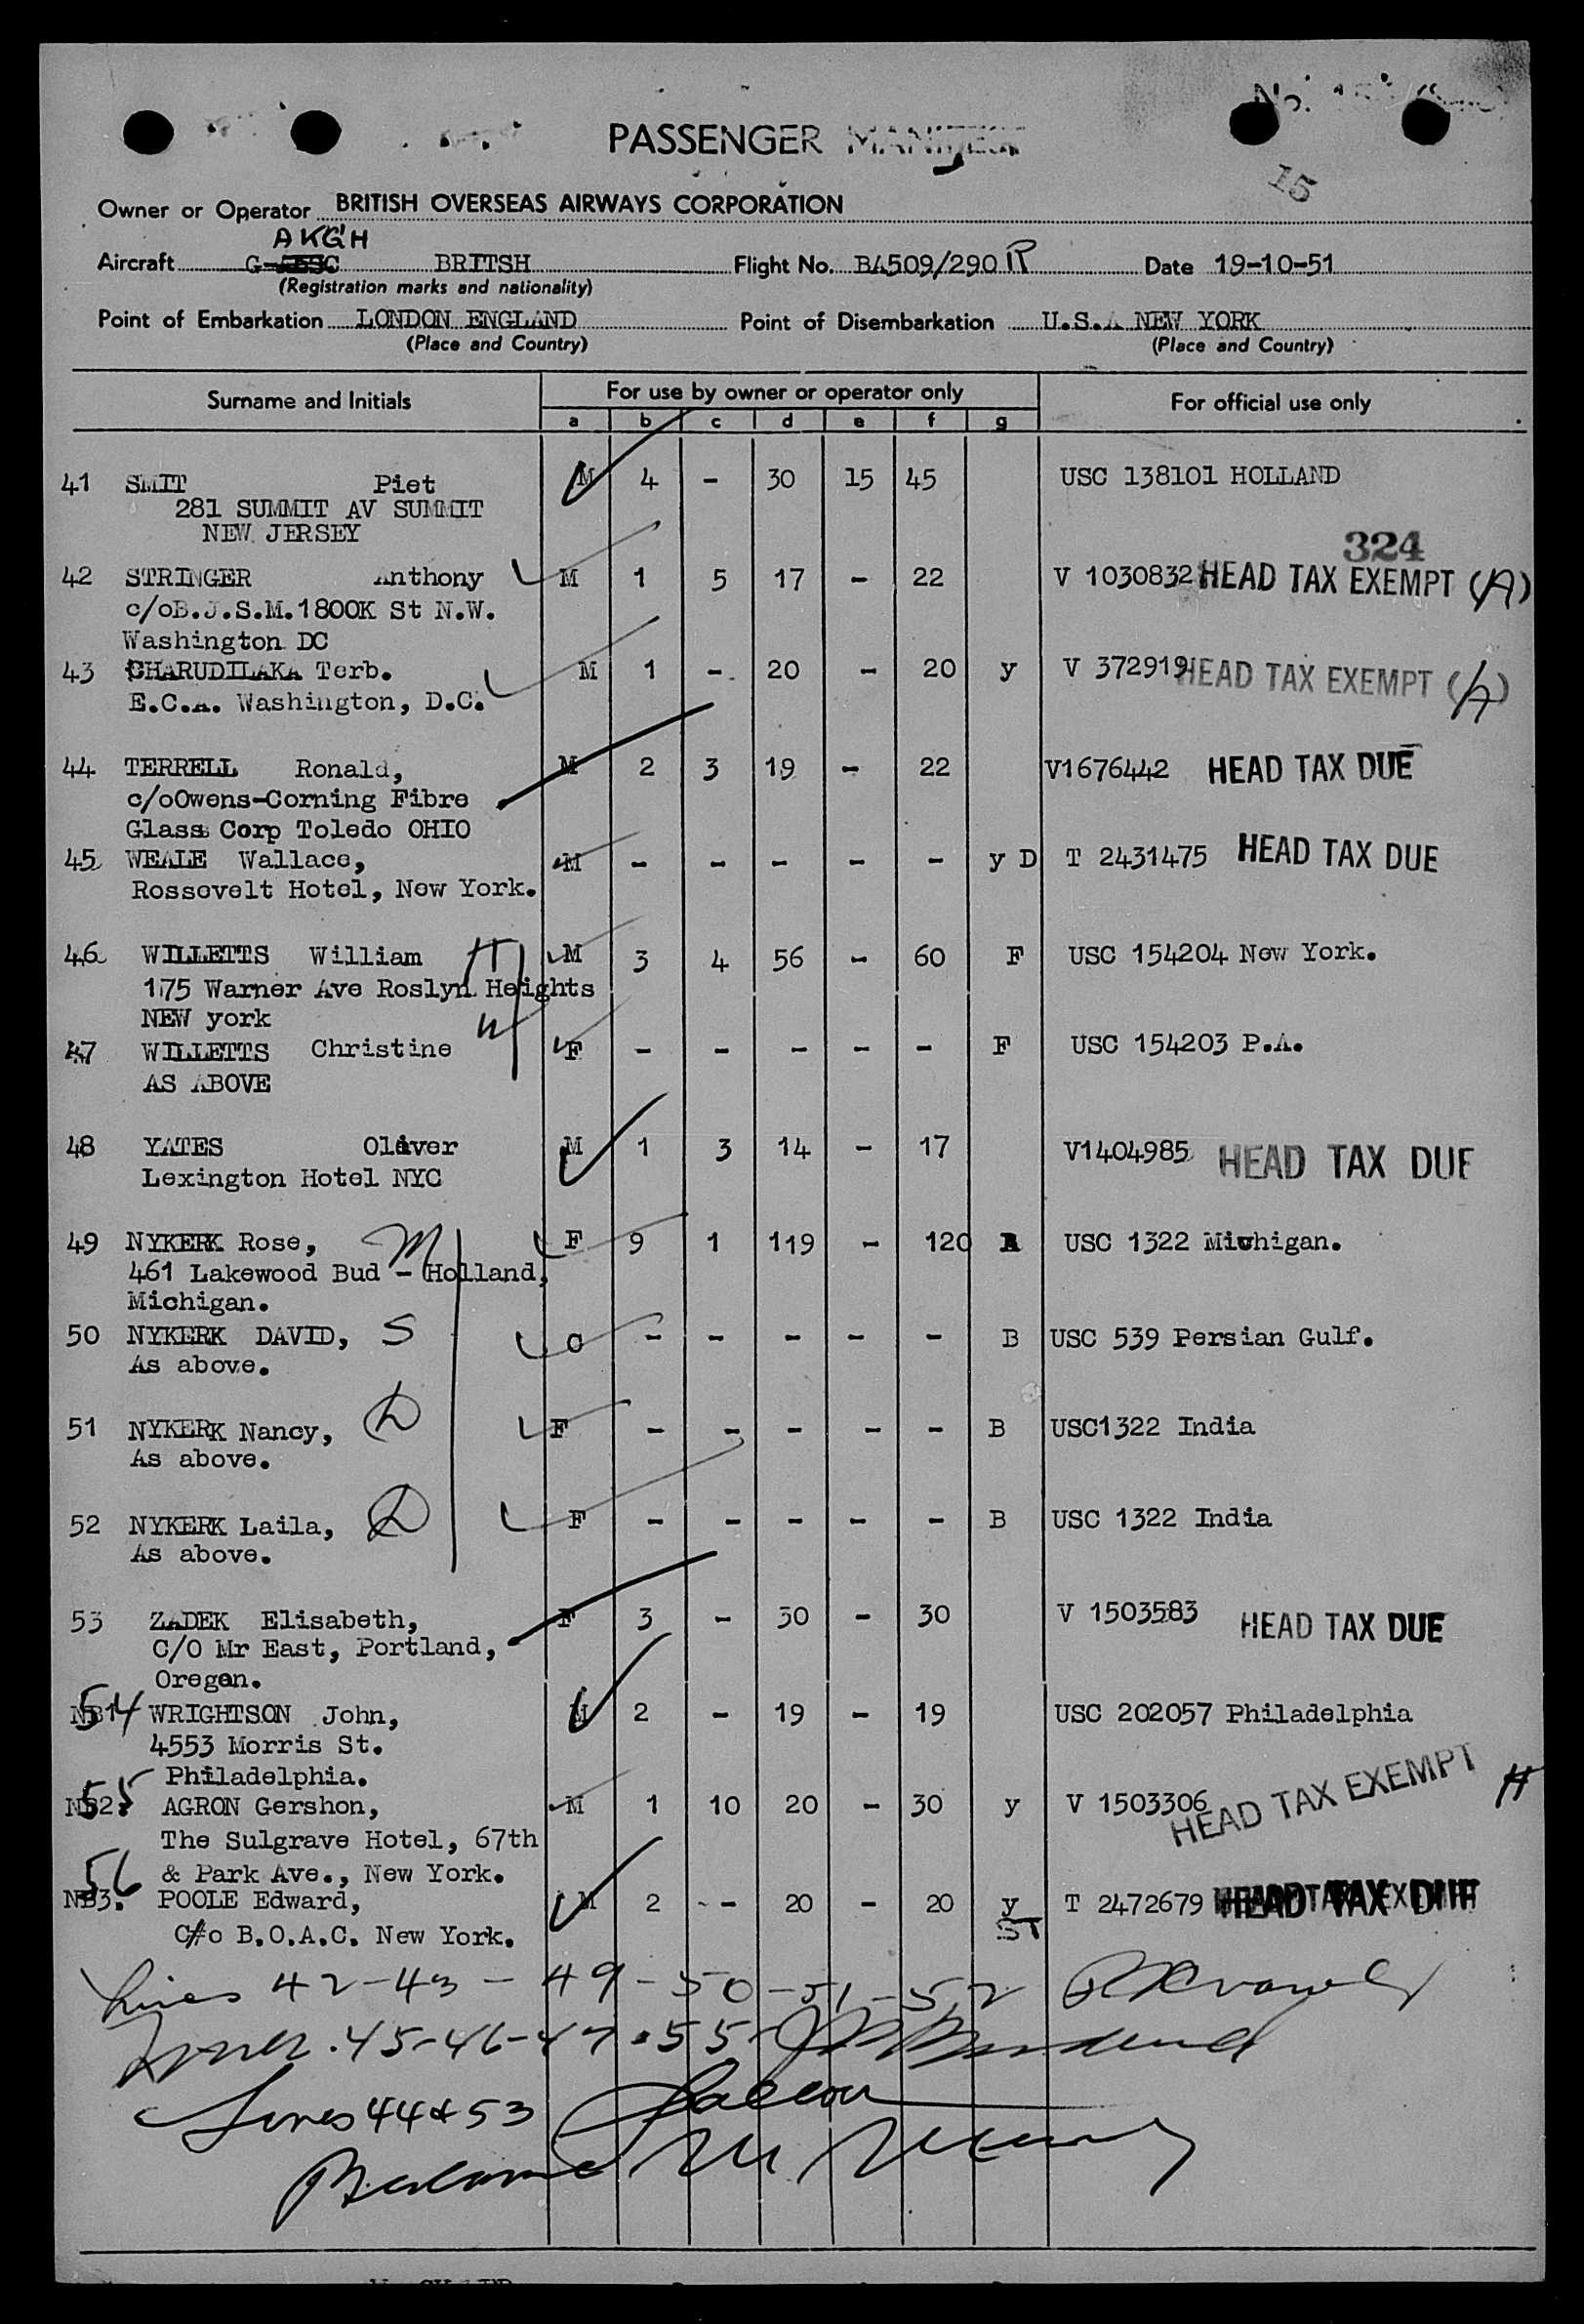 PASSENGER MANIFEST
15
Owner or Operator BRITISH OVERSEAS AIRWAYS CORPORATION
AKGH
Aircraft G- BRITSH Flight No. BA509/290 R Date 19-10-51
(Registration marks and nationality)
Point of Embarkation LONDON ENGLAND Point of Disembarkation U.S.A NEW YORK
(Place and Country) (Place and Country)
Surname and Initials For use by owner or operator only For official use only
a b c d e f g
41 SMIT Piet M 4 - 30 15 45 USC 138101 HOLLAND
281 SUMMIT AV SUMMIT
NEW JERSEY
324
42 STRINGER Anthony M 1 5 17 - 22 V 1030832 HEAD TAX EXEMPT (A)
c/oB.J.S.M.1800K St N.W.
Washington DC
43 CHARUDILAKA Terb. M 1 - 20 - 20 y V 372919 HEAD TAX EXEMPT (A)
E.C.A. Washington, D.C.
44 TERRELL Ronald, M 2 3 19 - 22 V1676442 HEAD TAX DUE
c/oOwens-Corning Fibre
Glass Corp Toledo OHIO
45 WEALE Wallace, M - - - - - y D T 2431475 HEAD TAX DUE
Rossovelt Hotel, New York.
46 WILLETTS William H M 3 4 56 - 60 F USC 154204 New York.
175 Warner Ave Roslyn Heights
NEW york
47 WILLETTS Christine W F - - - - - F USC 154203 P.A.
AS ABOVE
48 YATES Oliver M 1 3 14 - 17 V1404985 HEAD TAX DUE
Lexington Hotel NYC
49 NYKERK Rose, M F 9 1 119 - 120 A USC 1322 Michigan.
461 Lakewood Bud - Holland,
Michigan.
50 NYKERK DAVID, S C - - - - - B USC 539 Persian Gulf.
As above.
51 NYKERK Nancy, D F - - - - - B USC1322 India
As above.
52 NYKERK Laila, D F - - - - - B USC 1322 India
As above.
53 ZADEK Elisabeth, F 3 - 30 - 30 V 1503583 HEAD TAX DUE
C/O Mr East, Portland,
Oregon.
54 WRIGHTSON John, M 2 - 19 - 19 USC 202057 Philadelphia
4553 Morris St.
Philadelphia.
55 AGRON Gershon, M 1 10 20 - 30 y V 1503306 HEAD TAX EXEMPT A
The Sulgrave Hotel, 67th
& Park Ave., New York.
56 NB3. POOLE Edward, M 2 - - 20 - 20 y T 2472679 HEAD TAX DUE
C/o B.O.A.C. New York. ST
Lines 42-43-49-50-51-52
45-46-47-55
Lines 44 & 53
Balance